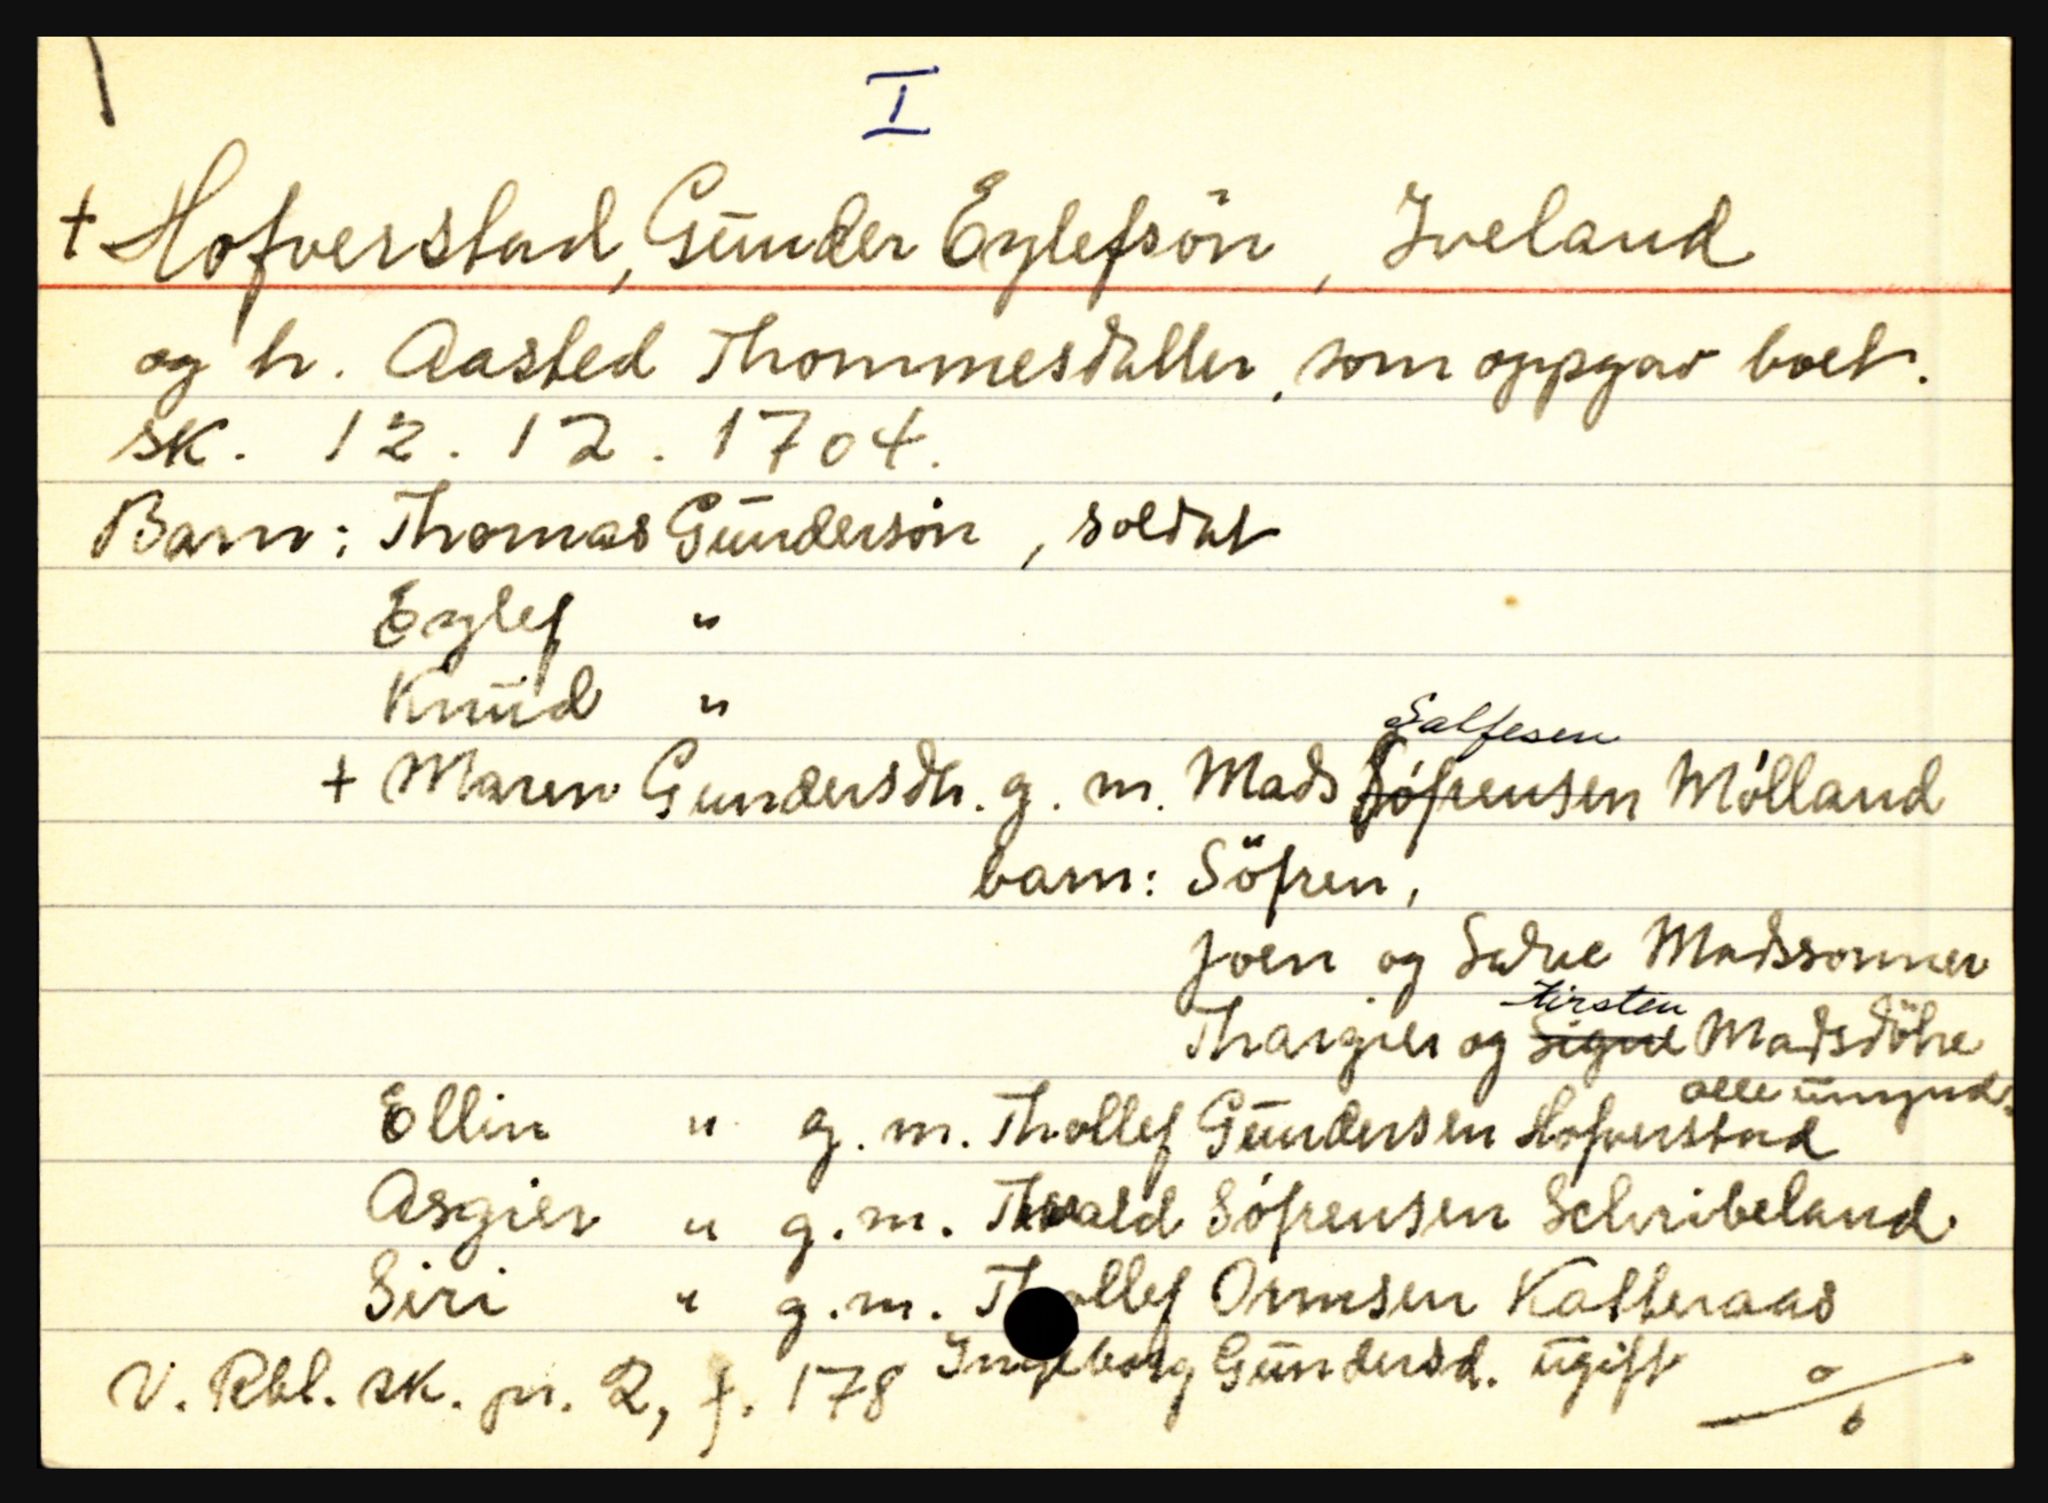 I
+ Hofverstad, Gunder Eylefsön, Iveland
og h. Aasted Thommesdatter, som oppgav boet.
sk. 12.12.1704.
Barn: Thomas Gundersön, soldat
Eylef "
Knud "
Salfesen
+ Maren Gundersdtr. g. m. Mads Söfrensen Mölland
barn: Söfren,
Joen og Salve Madssonner
Kirsten
Thargier og Signe Madsdötre
alle umynd.
Ellin " g. m. Thollef Gundersen Hofverstad
Asgier " g. m. Söfrensen Schribeland
Siri " g. m. Thollef Ormsen Katteraas
Ingeborg Gundersd. ugift
V. Rbl. sk. pr. 2, f. 178